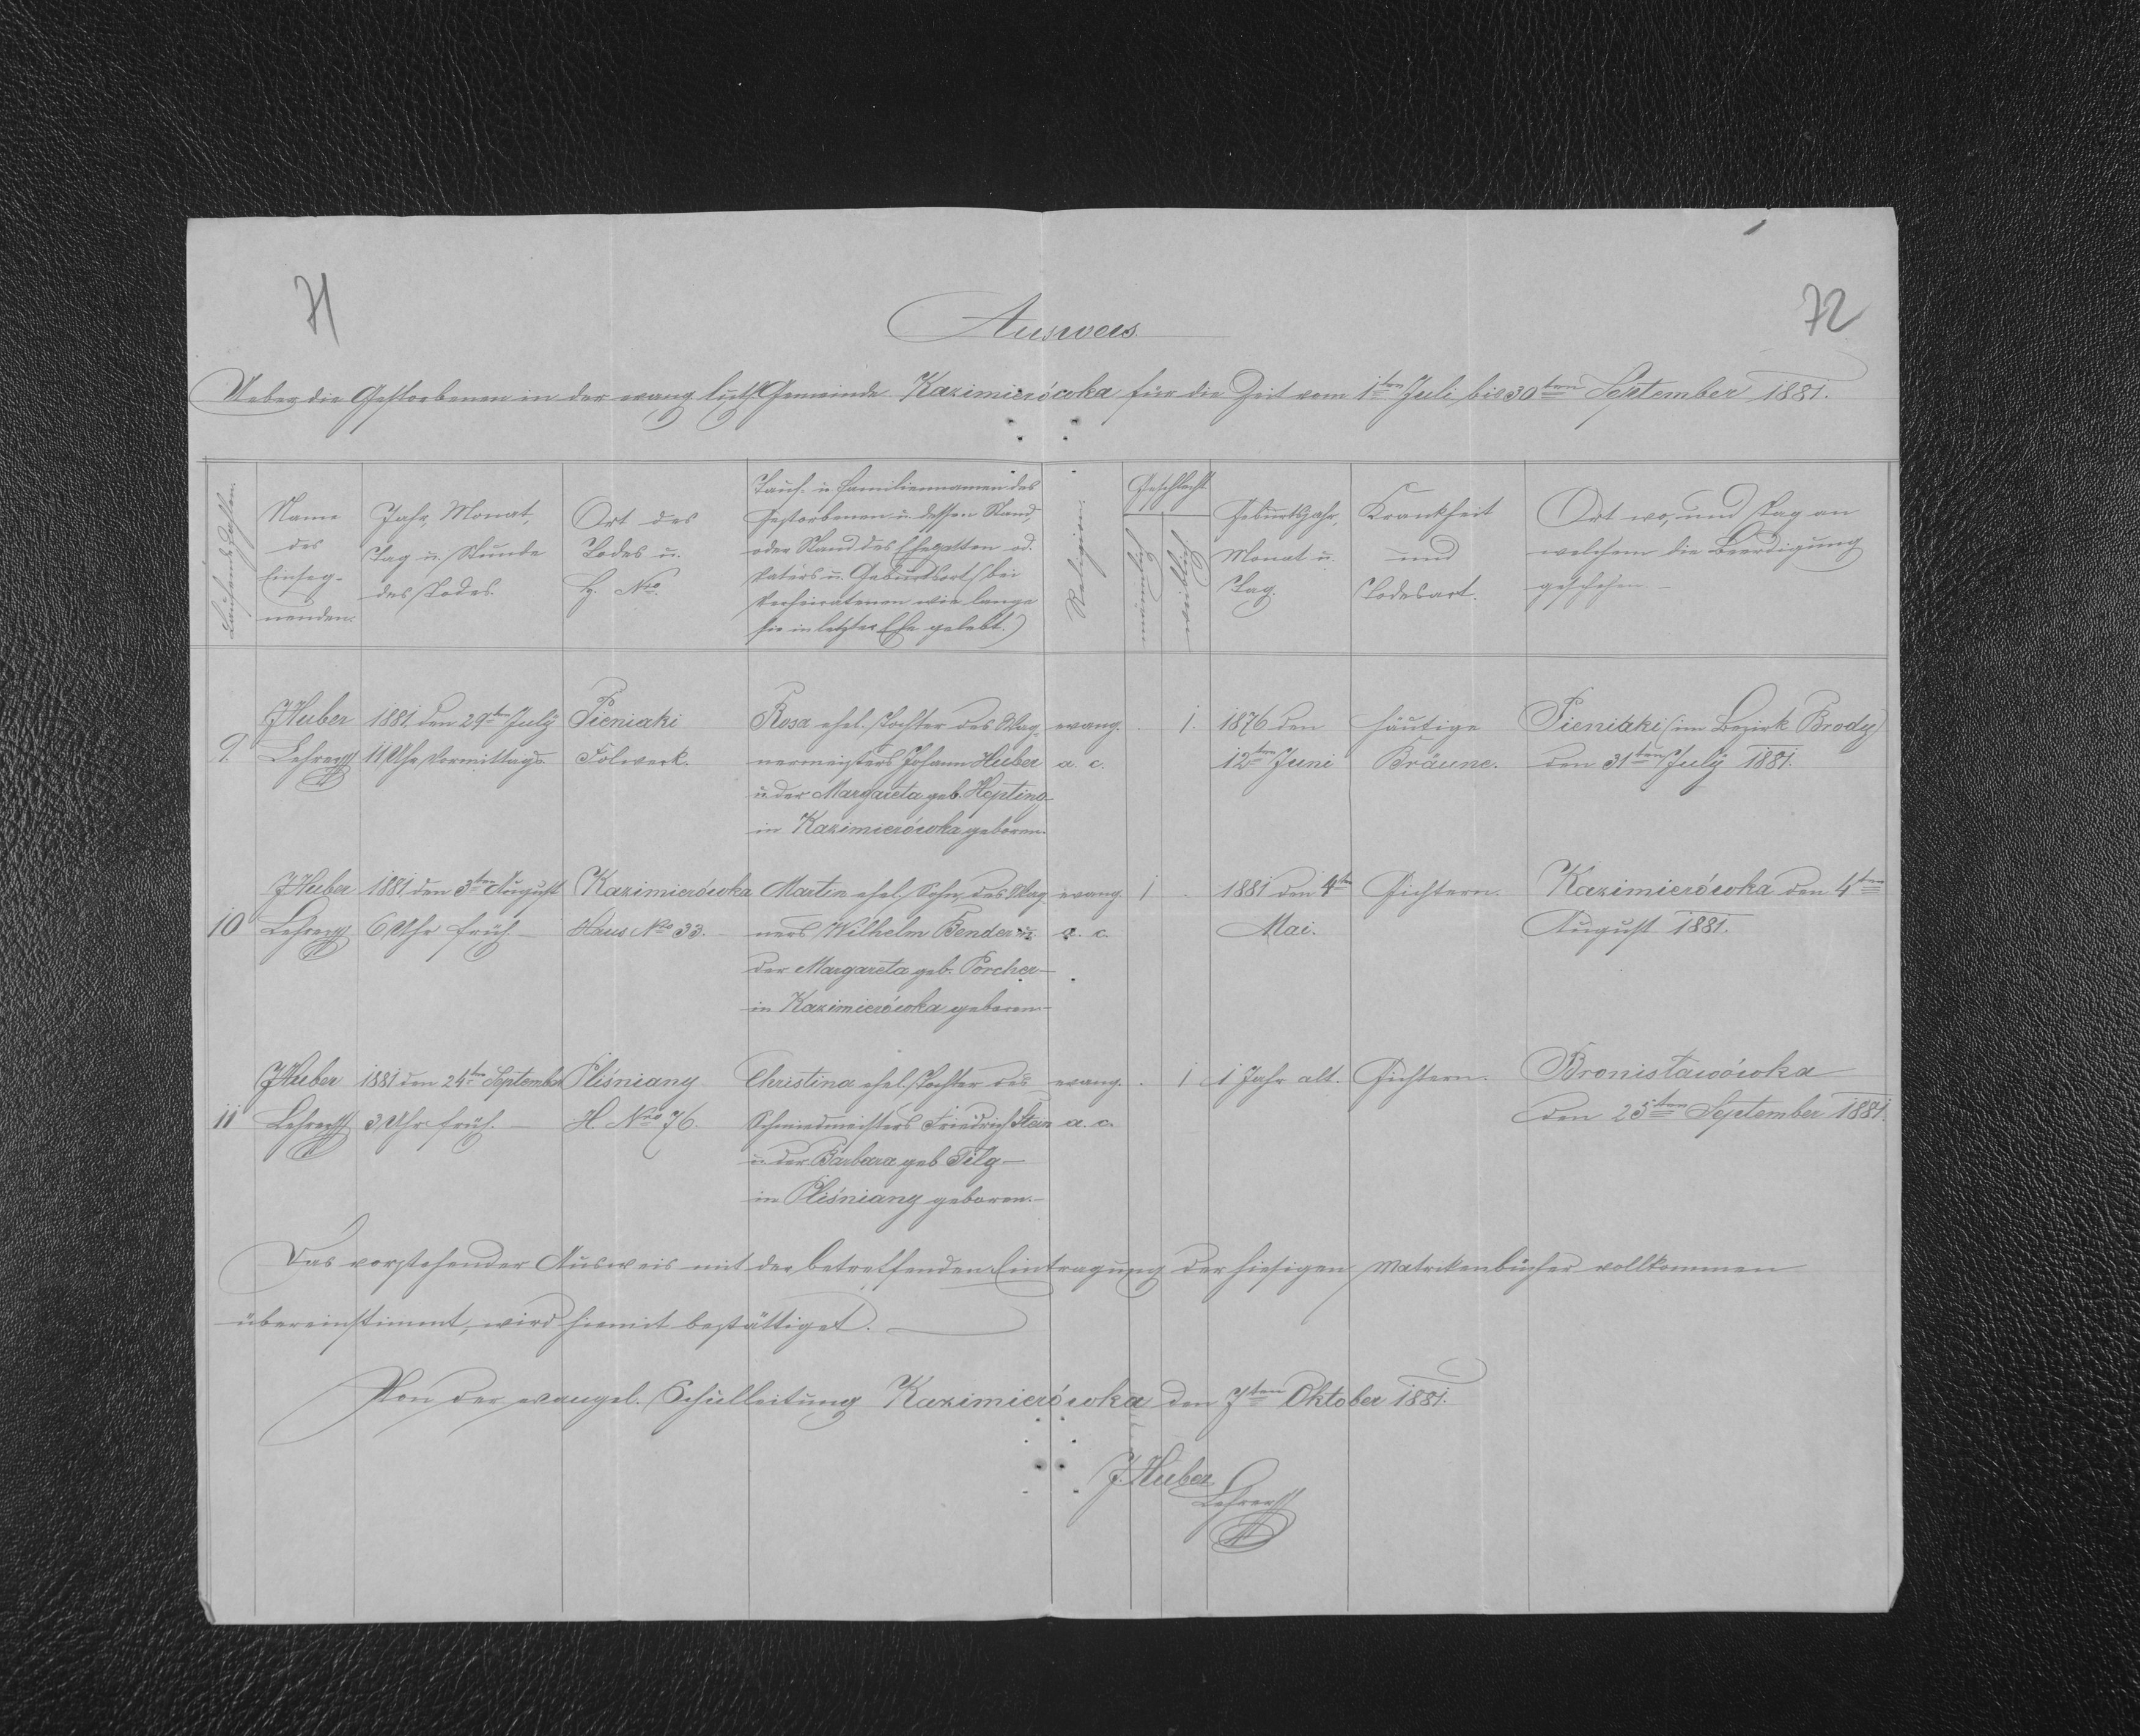 71
72
Ausweis
Ueber die Gestorbenen in der evang. luth. Gemeinde Kazimierówka für die Zeit vom 1ten Juli bis 30ten September 1881.
Laufende Zahlen.
Name des Einseg- nenden.
Jahr, Monat, Tag u. Stunde des Todes.
Ort des Todes u. H. Nro.
Tauf- u. Familiennamen des
Gestorbenen u. dessen Stand,
oder Stand des Ehegatten od.
Vaters u. Geburtsort (bei
Verheirateten wie lange
sie in letzter Ehe gelebt.)
Religion.
Geschlecht
männlich
weiblich
Geburtsjahr, Monat u. Tag.
Krankheit und Todesart.
Ort wo, und Tag an
welchem die Beerdigung
geschehen.
9.
J Huber
Lehrer
1881 den 29ten July
11 Uhr Vormittags
Pieniaki
Folwerk.
Rosa ehel. Tochter des Wag-
nermeisters Johann Huber
u. der Margareta geb. Hepting
in Kazimierówka geboren.
evang.
a. c.
. 1.
1876 den
12ten Juni
häutige
Bräune.
Pieniaki (im Bezirk Brody)
den 31ten July 1881.
10
J Huber
Lehrer
1881 den 3ten August
6 Uhr früh
Kazimierówka
Haus Nro 33.
Martin ehel. Sohn des Wag-
ners Wilhelm Bender u.
der Margareta geb. Porcher
in Kazimierówka geboren
evang.
a. c.
1 .
1881 den 4ten
Mai.
Gichtern.
Kazimierówka den 4ten
August 1881.
11
J Huber
Lehrer
1881 den 24ten September
3 Uhr früh.
Pliśniany
H. Nro 76.
Christina ehel. Tochter des
Schmiedmeisters Friedrich Stein
u. der Barbara geb. Filg
in Pliśniany geboren.
evang.
a. c.
. 1
1 Jahr alt.
Gichtern.
Bronisławówka
den 25ten September 1881.
Das vorstehender Ausweis mit der betreffenden Eintragung der hiesigen Matrikenbücher vollkommen
übereinstimmt, wird hiemit bestättiget.
Von der evangel. Schulleitung Kazimierówka den 7ten Oktober 1881.
J. Huber
Lehrer